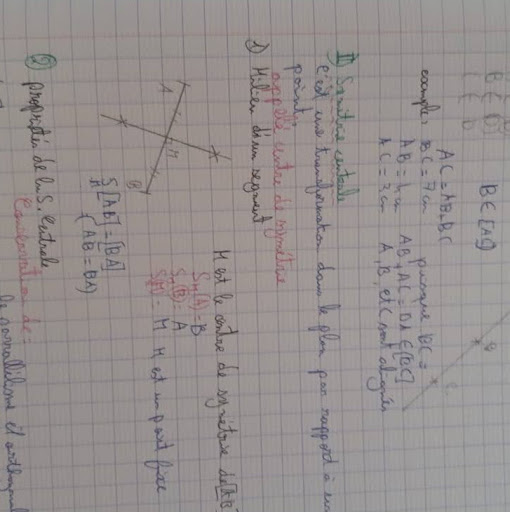 B ∈ [AC]
exemple:
AC = AB + BC
BC = 7 cm
AB = 4 cm
AC = 3 cm
puisque BC =
AB + AC = BA ∈ [BC]
A, B, et C sont alignés
II) Symétrie centrale
c'est une transformation dans le plan par rapport à un
point,
appelé centre de symétrie
1) Milieu d'un segment
A
M
B
M est le centre de symétrie de [AB]
S M (A) = B
S M (B) = A
S (M) = M M est un point fixe
S M [AB] = [BA]
(AB = BA)
2) propriétés de la S. Centrale
Conservation de:
le parallélisme et